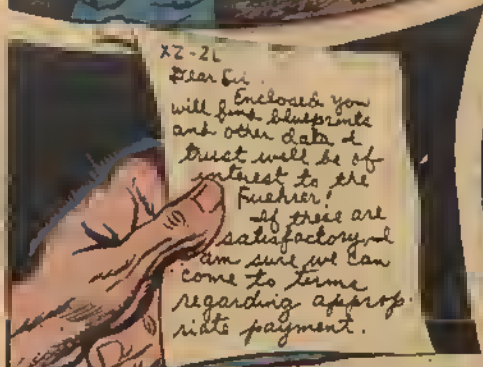 XZ-2L
Dear Sir.
Enclosed you
will find blueprints
and other data I
trust will be of
interest to the
Fuehrer!
If these are
satisfactory, I
am sure we can
come to terms
regarding approp-
riate payment.